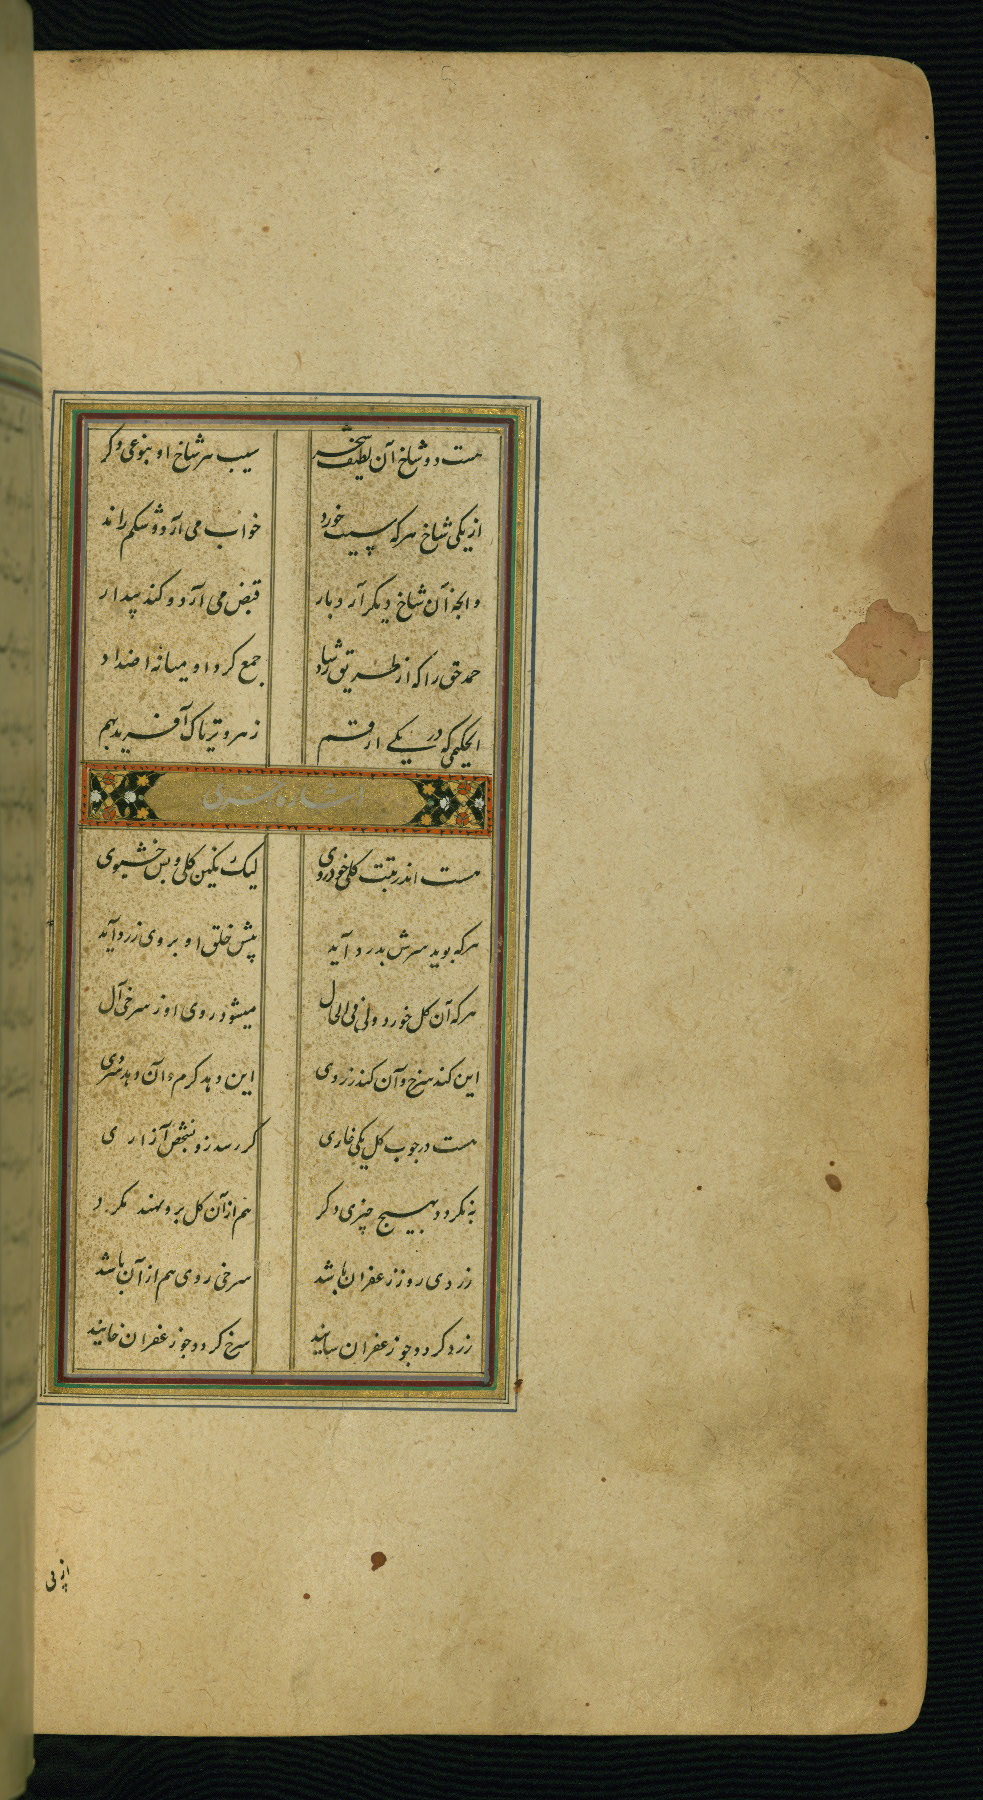 هست دو شاخ آن لطیف شجر سیب هر شاخ او بنوعی دکر
از یکی شاخ هرکه سیب خورد خواب می آرد و شکم راند
وانچه آن شاخ دیکر آرد بار قبض می آرد و کند بیدار
حمد حق را که از طریق رشاد جمع کرد او میانه اضداد
الحکیمی که در یکی ارقم زهر و تریاک آفرید بهم
اشاره
هست اندر تبت کلی خودروی لیک رنکین کلی و بس خشبوی
هرکه بوید سرش بدرد آید پیش خلق او بروی زرد آید
هرکه آن کل خورد ولی فی الحال میشود روی او ز سرخی آل
این کند سرخ و آن کند زردی این دهد کرم و آن دهد سردی
هست در چوب کل یکی خاری کر رسد زو بشخص آزاری
به نکردد بهیچ چیزی دکر هم از آن کل برو نهند مکر
زردی رو ز زعفران باشد سرخی روی هم از آن باشد
زرد کردد چو زعفران سایند سرخ کردد چو زعفران خایند
از پی